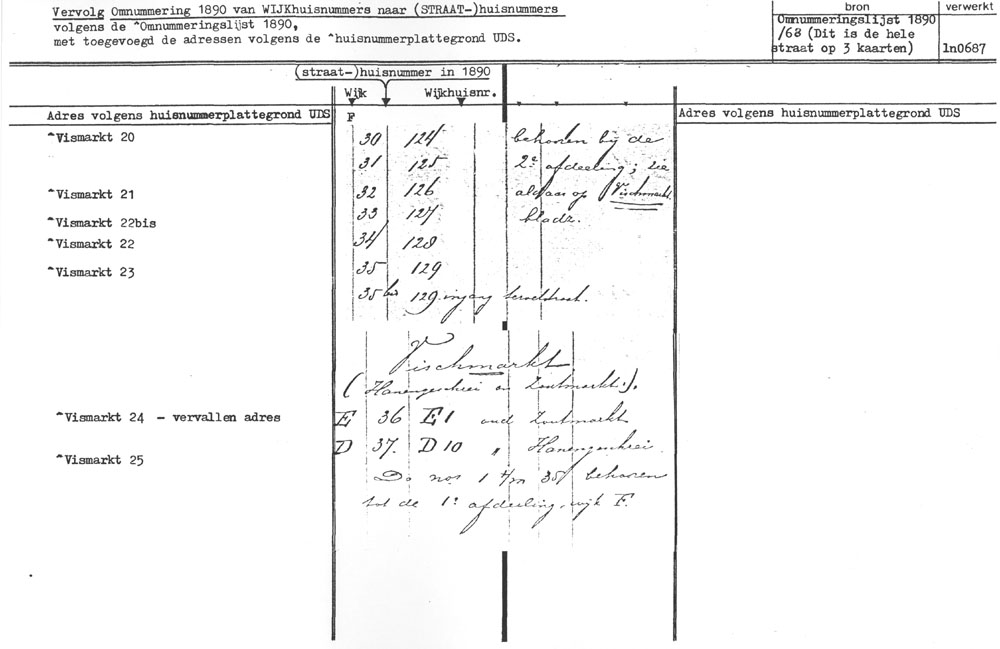 Vervolg Omnummering 1890 van WIJKhuisnummers naar (STRAAT-)huisnummers
volgens de ^Omnummeringslijst 1890,
met toegevoegd de adressen volgens de ^huisnummerplattegrond UDS.
bron
Omnummeringslijst 1890
/68 (Dit is de hele
straat op 3 kaarten)
verwerkt
ln0687
(straat-)huisnummer in 1890
Wijk Wijkhuisnr.
Adres volgens huisnummerplattegrond UDS F Adres volgens huisnummerplattegrond UDS
^Vismarkt 20 30 124 behooren bij de
31 125 2e afdeeling; zie
^Vismarkt 21 32 126 aldaar op Vischmarkt
^Vismarkt 22bis 33 127 bladz.
^Vismarkt 22 34 128
^Vismarkt 23 35 129
35 bis 129 ingang
Vischmarkt
(Hanengeschrei en Zoutmarkt.).
^Vismarkt 24 - vervallen adres E 36 E1 oud Zoutmarkt
^Vismarkt 25 D 37. D10 " Hanengeschrei.
De nos 1 t/m 35 behooren
tot de 1e afdeeling, wijk F.